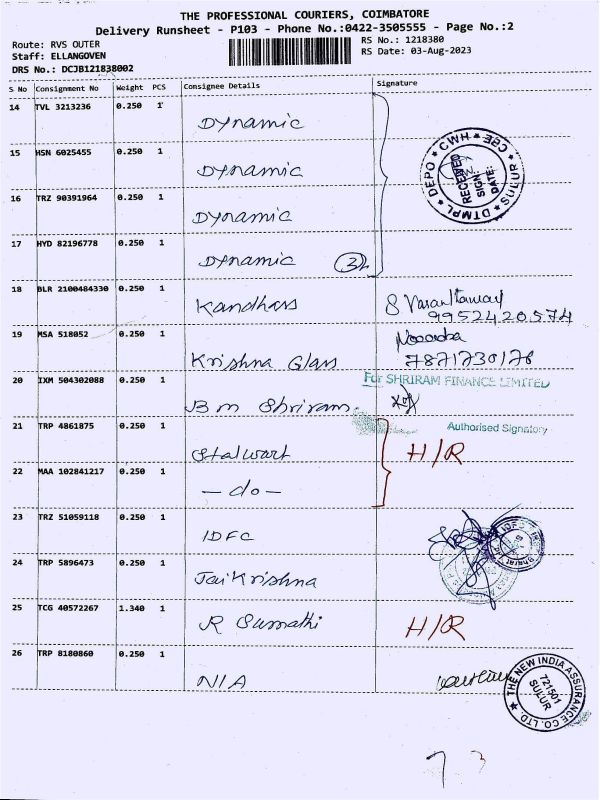 THE PROFESSIONAL COURIERS, COIMBATORE
Delivery Runsheet - P103 - Phone No.:0422-3505555 - Page No.:2
Route: RVS OUTER
Staff: ELLANGOVEN
DRS No.: DCJB121838002
RS No.: 1218380
RS Date: 03-Aug-2023
S No Consignment No Weight PCS Consignee Details Signature
14 TVL 3213236 0.250 1 Dynamic
DTMPL DEPO CWH CBE SULUR
RECEIVED
SIGN:
DATE:
15 HSN 6025455 0.250 1 Dynamic
16 TRZ 90391964 0.250 1 Dynamic
17 HYD 82196778 0.250 1 Dynamic
18 BLR 2100484330 0.250 1 Kandhass
9952420574
19 MSA 518052 0.250 1 Krishna Glass
7871730176
20 IXM 504302088 0.250 1 B m Shriram
For SHRIRAM FINANCE LIMITED
Authorised Signatory
21 TRP 4861875 0.250 1 Stalwart H/R
22 MAA 102841217 0.250 1 -do-
23 TRZ 51059118 0.250 1 IDFC
24 TRP 5896473 0.250 1 Jai Krishna
25 TCG 40572267 1.340 1 R Sumathi H/R
26 TRP 8180860 0.250 1 NIA
THE NEW INDIA ASSURANCE CO. LTD.
721501
SULUR